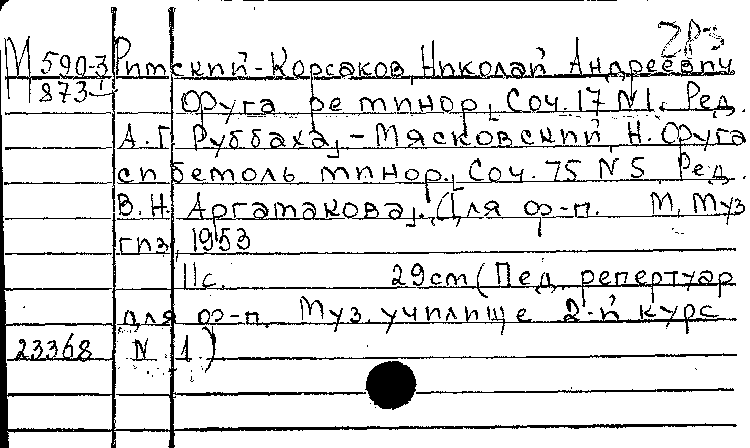 М 590-3 Римский-Корсаков, Николай Андреевич
873 Фуга ре минор, Соч. 17 N1. Ред.
А. Г. Руббаха, – Мясковский, Н. Фуга
си бемоль минор, Соч. 75 N 5 Ред.
В. Н. Аргамакова, (Для ф-п. М, Муз
гиз, 1953
11с. 29см (Пед. репертуар
для ф-п. Муз. училище 2-й курс
23368 N 1)